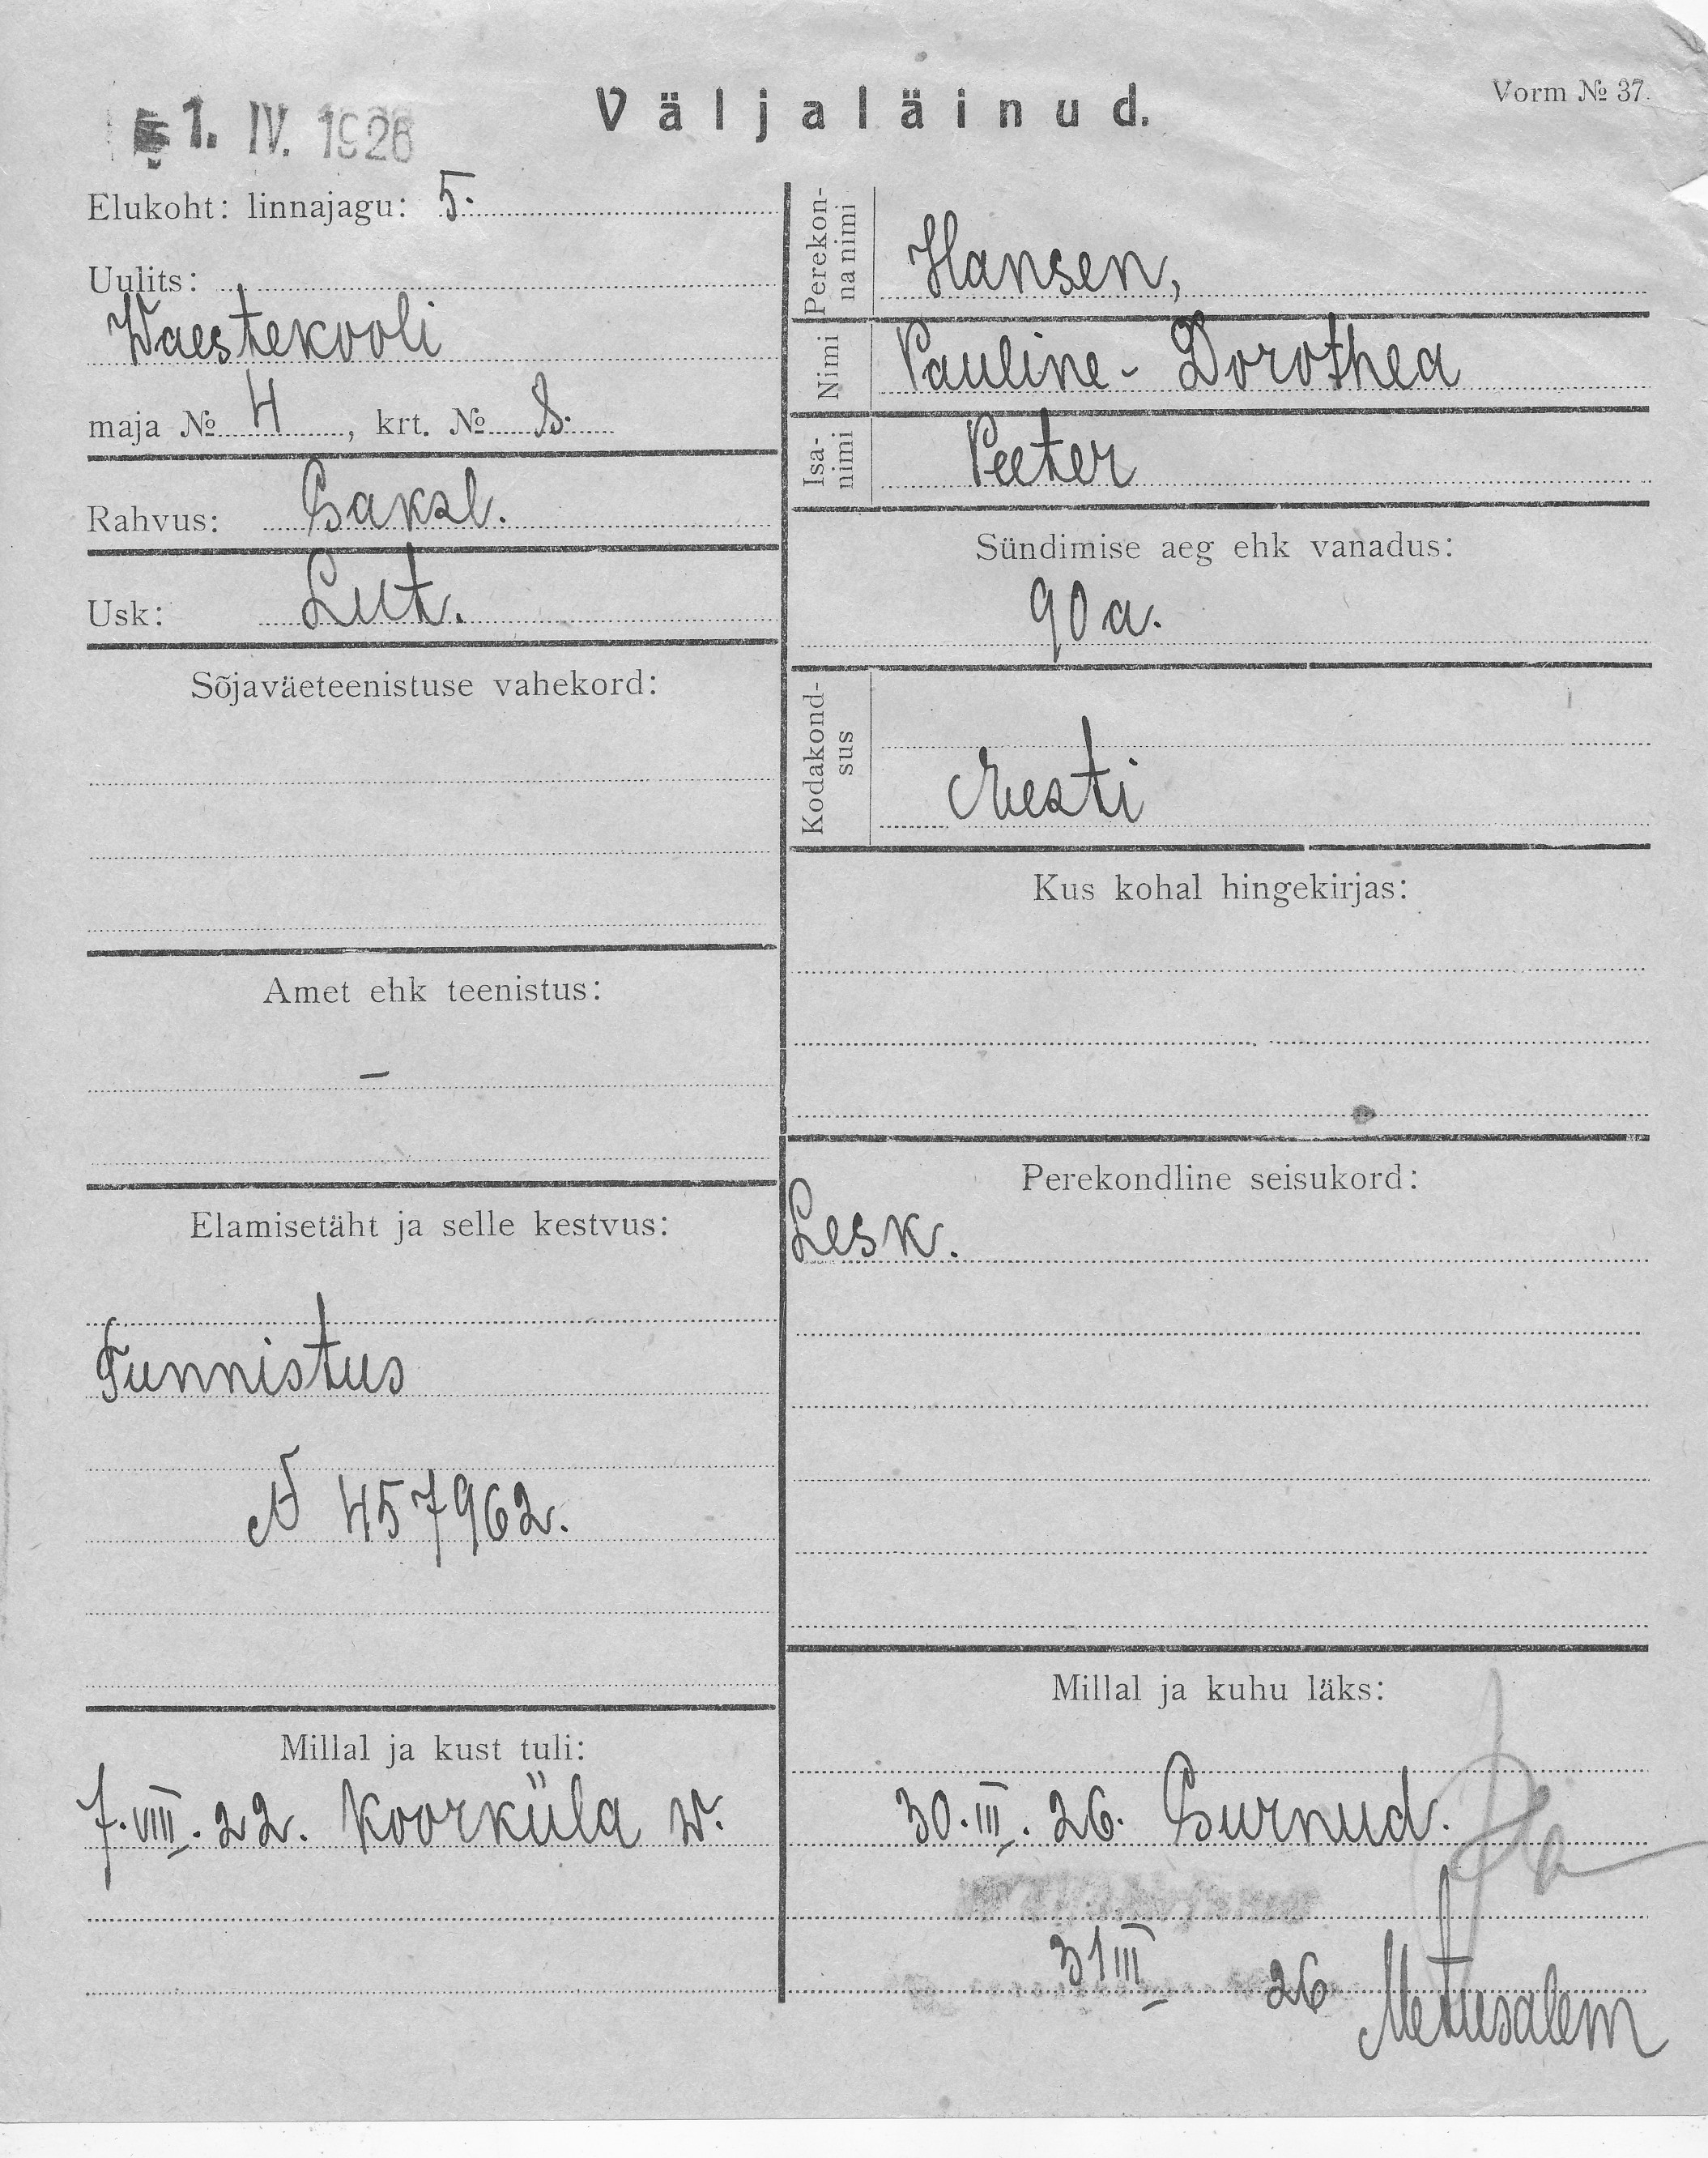 Väljaläinud.
Vorm № 37.
1. IV. 1926
Elukoht: linnajagu: 5.
Uulits:
Waestekooli
maja № 4, krt. № 8.
Rahvus: Saksl.
Usk: Lut.
Sõjaväeteenistuse vahekord:
Amet ehk teenistus:
–
Elamisetäht ja selle kestvus:
Tunnistus
№ 457962.
Millal ja kust tuli:
7.VIII.22. Koorküla w.
Perekonna nimi
Hansen,
Nimi
Pauline-Dorothea
Isanimi
Peeter
Sündimise aeg ehk vanadus:
90 a.
Kodakondsus
Eesti
Kus kohal hingekirjas:
Perekondline seisukord:
Lesk.
Millal ja kuhu läks:
30.III.26. Surnud.
31 III 26 Metusalem